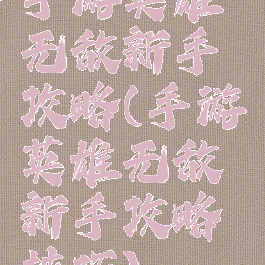 手游英雄
无敌新手
攻略(手游
英雄无敌
新手攻略
技巧)